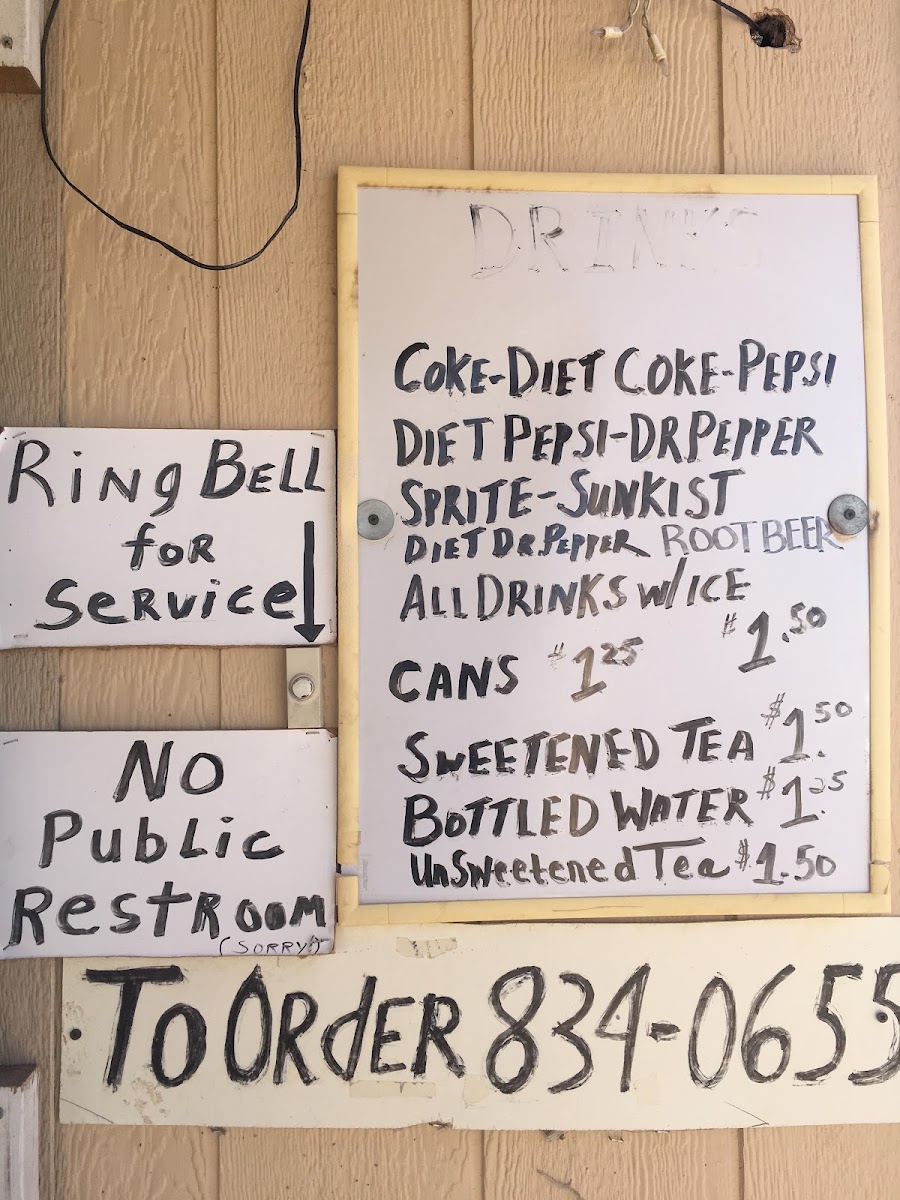 DRINKS
COKE-DIET COKE-PEPSI
DIET PEPSI-DR PEPPER
SPRITE-SUNKIST
DIET DR.PEPPER ROOT BEER
ALL DRINKS W/ICE
$1.50
CANS $1.25
SWEETENED TEA $1.50
BOTTLED WATER $1.25
UnSweetened Tea $1.50
RING BELL
for
Service
No
Public
RestROOM
(SORRY!)
To ORdER 834-0655